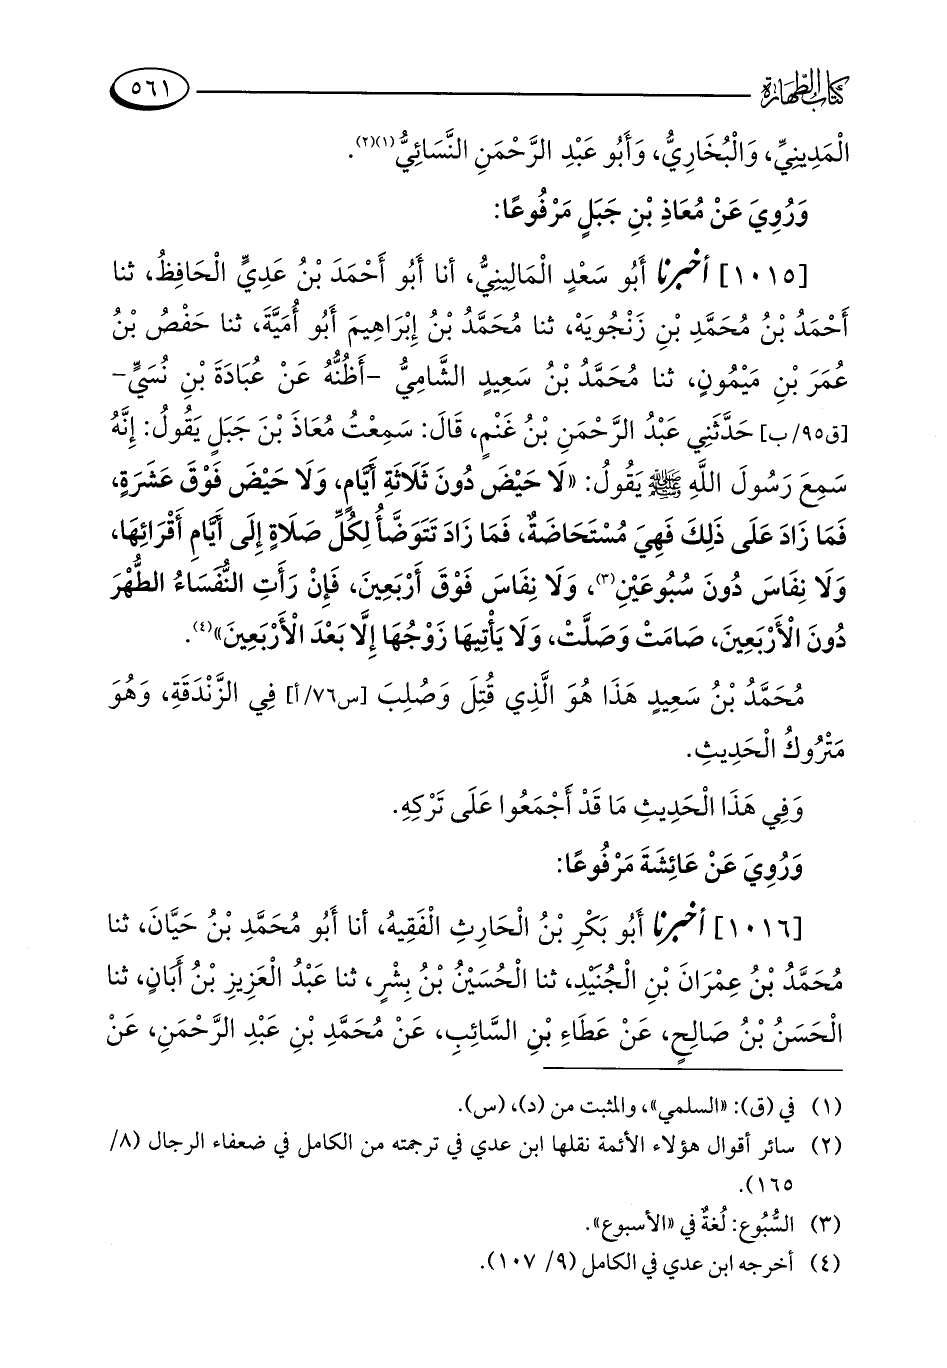 كتاب الطهارة ٥٦١
الْمَدِينِيِّ، وَالْبُخَارِيُّ، وَأَبُو عَبْدِ الرَّحْمَنِ النَّسَائِيُّ(١)(٢).
وَرُوِيَ عَنْ مُعَاذِ بْنِ جَبَلٍ مَرْفُوعًا:
[١٠١٥] أخبرنا أَبُو سَعْدٍ الْمَالِينِيُّ، أنا أَبُو أَحْمَدَ بْنُ عَدِيٍّ الْحَافِظُ، ثنا
أَحْمَدُ بْنُ مُحَمَّدِ بْنِ زَنْجُويَهْ، ثنا مُحَمَّدُ بْنُ إِبْرَاهِيمَ أَبُو أُمَيَّةَ، ثنا حَفْصُ بْنُ
عُمَرَ بْنِ مَيْمُونٍ، ثنا مُحَمَّدُ بْنُ سَعِيدٍ الشَّامِيُّ -أَظُنُّهُ عَنْ عُبَادَةَ بْنِ نُسَيٍّ-
[ق٩٥/ ب] حَدَّثَنِي عَبْدُ الرَّحْمَنِ بْنُ غَنْمٍ، قَالَ: سَمِعْتُ مُعَاذَ بْنَ جَبَلٍ يَقُولُ: إِنَّهُ
سَمِعَ رَسُولَ اللَّهِ ﷺ يَقُولُ: «لَا حَيْضَ دُونَ ثَلَاثَةِ أَيَّامٍ، وَلَا حَيْضَ فَوْقَ عَشَرَةٍ،
فَمَا زَادَ عَلَى ذَلِكَ فَهِيَ مُسْتَحَاضَةٌ، فَمَا زَادَ تَتَوَضَّأُ لِكُلِّ صَلَاةٍ إِلَى أَيَّامِ أَقْرَائِهَا،
وَلَا نِفَاسَ دُونَ سُبُوعَيْنِ(٣)، وَلَا نِفَاسَ فَوْقَ أَرْبَعِينَ، فَإِنْ رَأَتِ النُّفَسَاءُ الطُّهْرَ
دُونَ الْأَرْبَعِينَ، صَامَتْ وَصَلَّتْ، وَلَا يَأْتِيهَا زَوْجُهَا إِلَّا بَعْدَ الْأَرْبَعِينَ»(٤).
مُحَمَّدُ بْنُ سَعِيدٍ هَذَا هُوَ الَّذِي قُتِلَ وَصُلِبَ [س٧٦/ أ] فِي الزَّنْدَقَةِ، وَهُوَ
مَتْرُوكُ الْحَدِيثِ.
وَفِي هَذَا الْحَدِيثِ مَا قَدْ أَجْمَعُوا عَلَى تَرْكِهِ.
وَرُوِيَ عَنْ عَائِشَةَ مَرْفُوعًا:
[١٠١٦] أخبرنا أَبُو بَكْرِ بْنُ الْحَارِثِ الْفَقِيهُ، أنا أَبُو مُحَمَّدِ بْنُ حَيَّانَ، ثنا
مُحَمَّدُ بْنُ عِمْرَانَ بْنِ الْجُنَيْدِ، ثنا الْحُسَيْنُ بْنُ بِشْرٍ، ثنا عَبْدُ الْعَزِيزِ بْنُ أَبَانٍ، ثنا
الْحَسَنُ بْنُ صَالِحٍ، عَنْ عَطَاءِ بْنِ السَّائِبِ، عَنْ مُحَمَّدِ بْنِ عَبْدِ الرَّحْمَنِ، عَنْ
(١) في (ق): «السلمي»، والمثبت من (د)، (س).
(٢) سائر أقوال هؤلاء الأئمة نقلها ابن عدي في ترجمته من الكامل في ضعفاء الرجال (٨/
١٦٥).
(٣) السُّبُوع: لُغةٌ في «الأسبوع».
(٤) أخرجه ابن عدي في الكامل (٩/ ١٠٧).